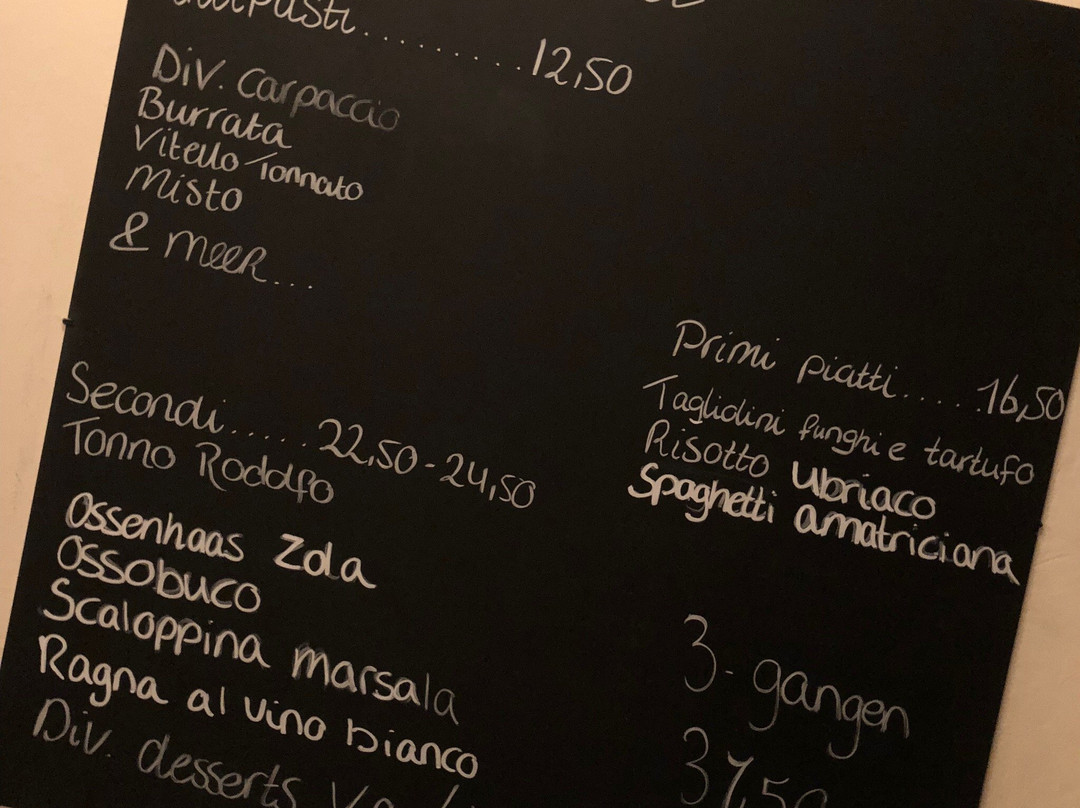 antipasti.........12,50
Div. Carpaccio
Burrata
Vitello Tonnato
Misto
& meer...
Secondi.....22,50-24,50
Tonno Rodolfo
Ossenhaas Zola
Ossobuco
Scaloppina marsala
Ragna al vino bianco
Div. desserts
Primi piatti.....16,50
Tagliolini funghi e tartufo
Risotto Ubriaco
Spaghetti amatriciana
3-gangen
37,50